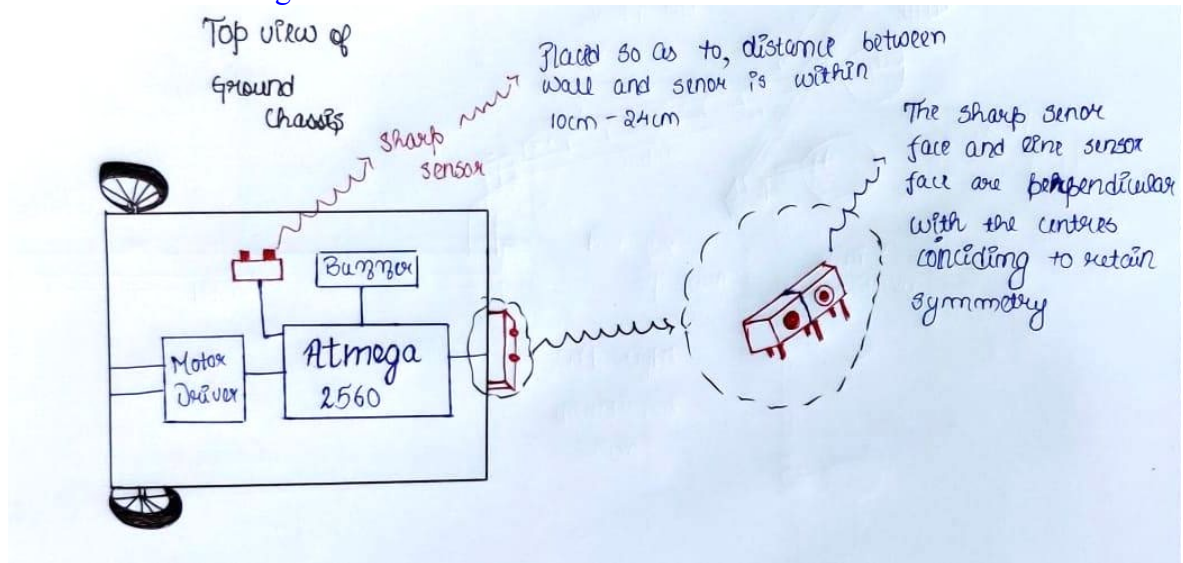 Top view of
Ground
Chassis
sharp
sensor
Placed so as to, distance between
wall and senor is within
10cm - 24cm
The sharp senor
face and line sensor
face are perpendicular
with the centres
conciding to retain
symmetry
Buzzer
Motor
Driver
Atmega
2560